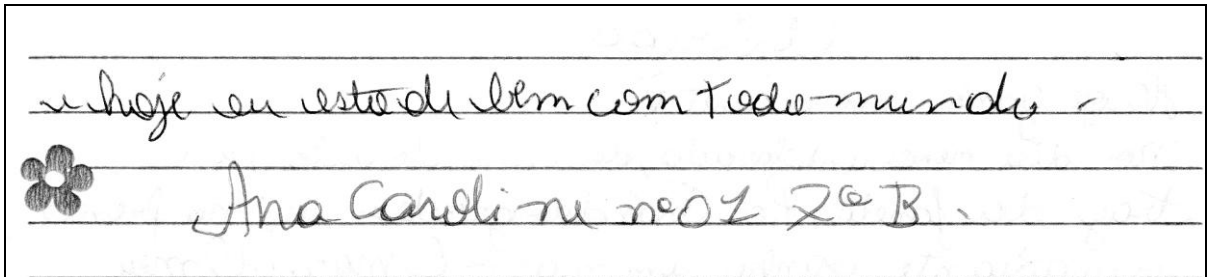 e hoje eu esto de bem com todo mundo.
Ana Caroline nº 01 7ª B.